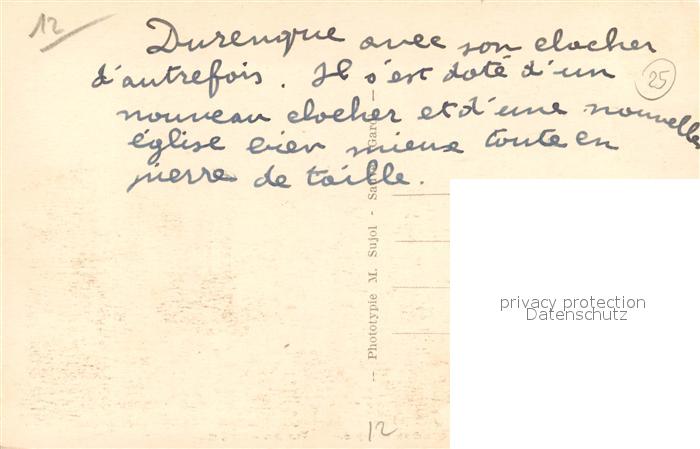 12
Durenque avec son clocher
d'autrefois. Il s'est doté d'un
25
nouveau clocher et d'une nouvelle
église bien mieux toute en
pierre de taille.
-- Phototypie M. Sujol - Gard --
privacy protection
Datenschutz
12